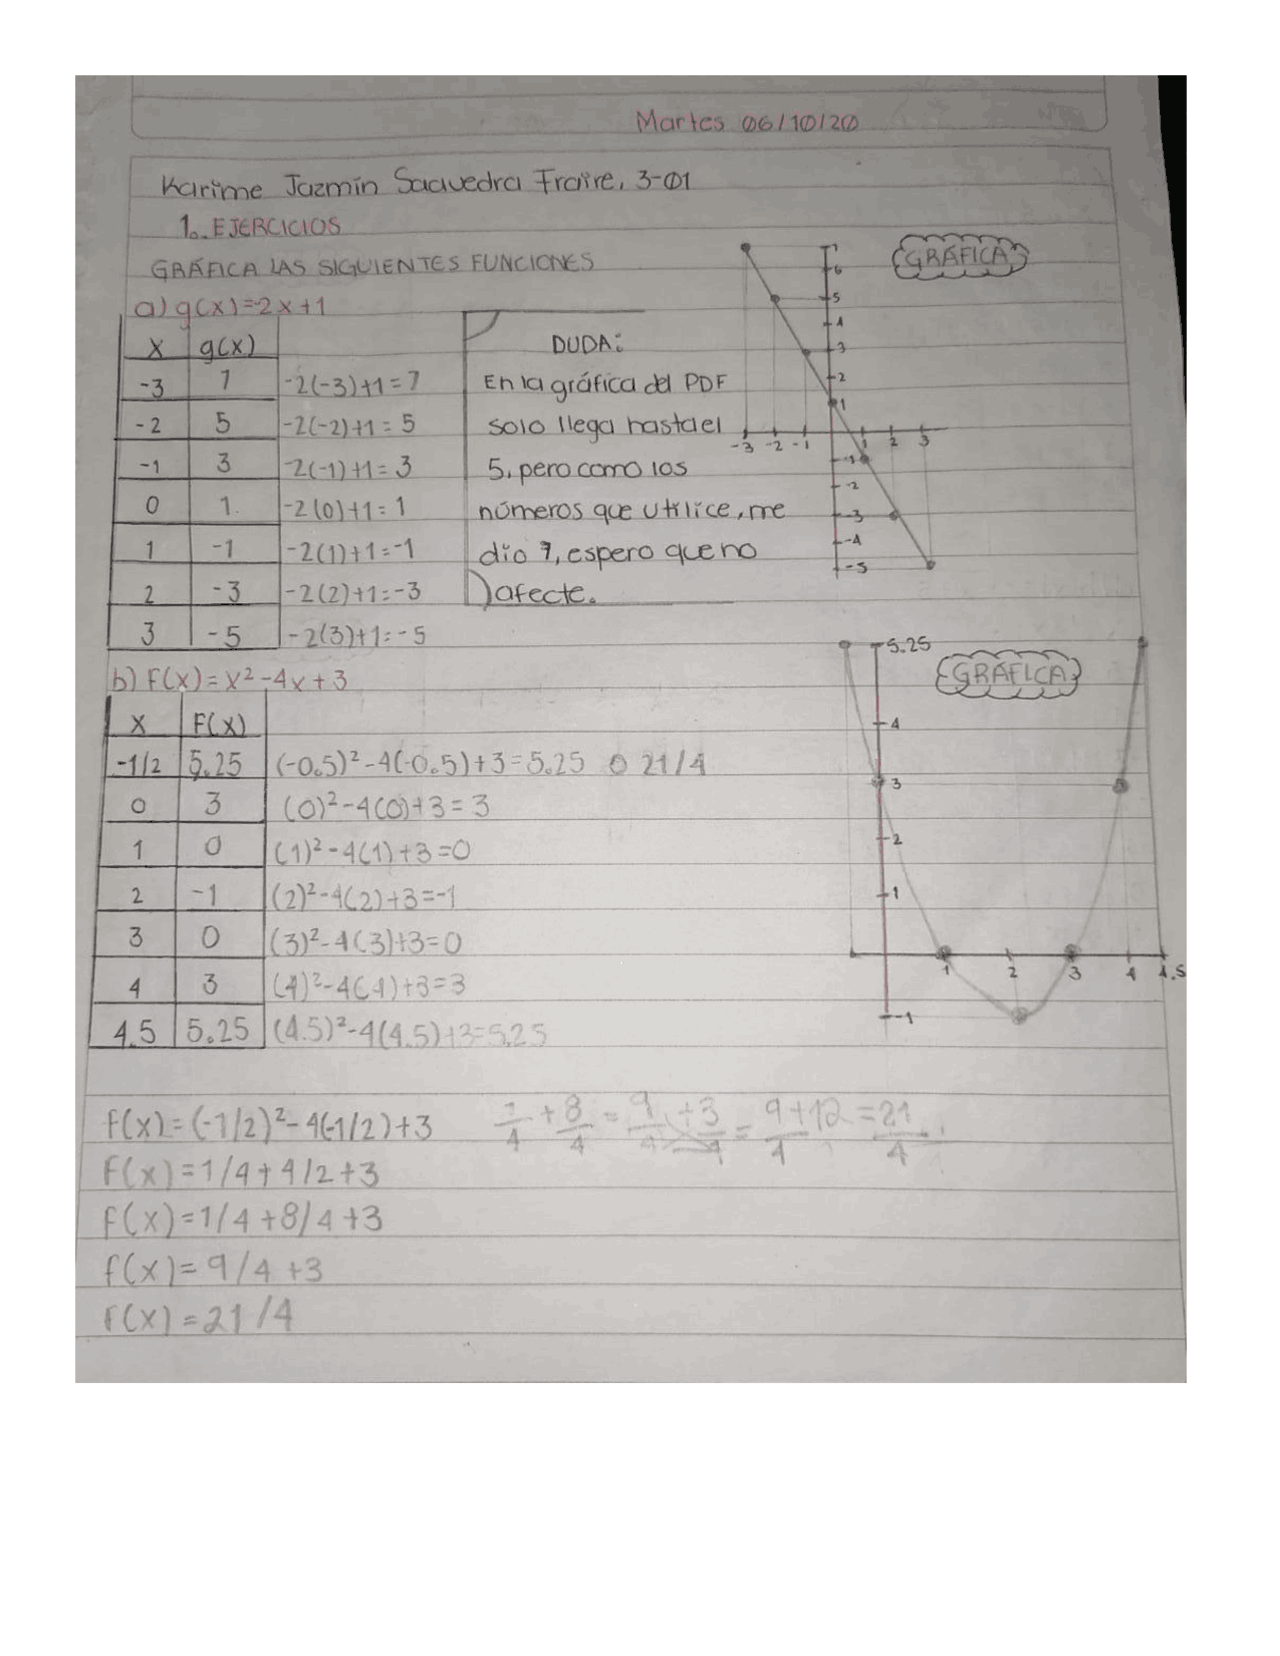 Martes 06/10/20
Karime Jazmín Saavedra Fraire, 3-01
1. EJERCICIOS
GRÁFICA LAS SIGUIENTES FUNCIONES
a) g(x)=-2x+1
x g(x)
-3 7 -2(-3)+1=7
-2 5 -2(-2)+1=5
-1 3 -2(-1)+1=3
0 1. -2(0)+1=1
1 -1 -2(1)+1=-1
2 -3 -2(2)+1=-3
3 -5 -2(3)+1=-5
DUDA:
En la gráfica del PDF
solo llega hasta el
5, pero como los
números que utilice, me
dio 7, espero que no
afecte.
GRÁFICA
7
6
5
4
3
2
1
-3 -2 -1 1 2 3
-1
-2
-3
-4
-5
b) F(x)=x²-4x+3
x F(x)
-1/2 5.25 (-0.5)²-4(-0.5)+3=5.25 o 21/4
0 3 (0)²-4(0)+3=3
1 0 (1)²-4(1)+3=0
2 -1 (2)²-4(2)+3=-1
3 0 (3)²-4(3)+3=0
4 3 (4)²-4(4)+3=3
4.5 5.25 (4.5)²-4(4.5)+3=5.25
GRÁFICA
5.25
4
3
2
1
1 2 3 4 4.5
-1
f(x)=(-1/2)²-4(-1/2)+3
1/4 + 8/4 = 9/4 + 3/1 = 9+12/4 = 21/4
f(x)=1/4+4/2+3
f(x)=1/4+8/4+3
f(x)=9/4+3
f(x)=21/4